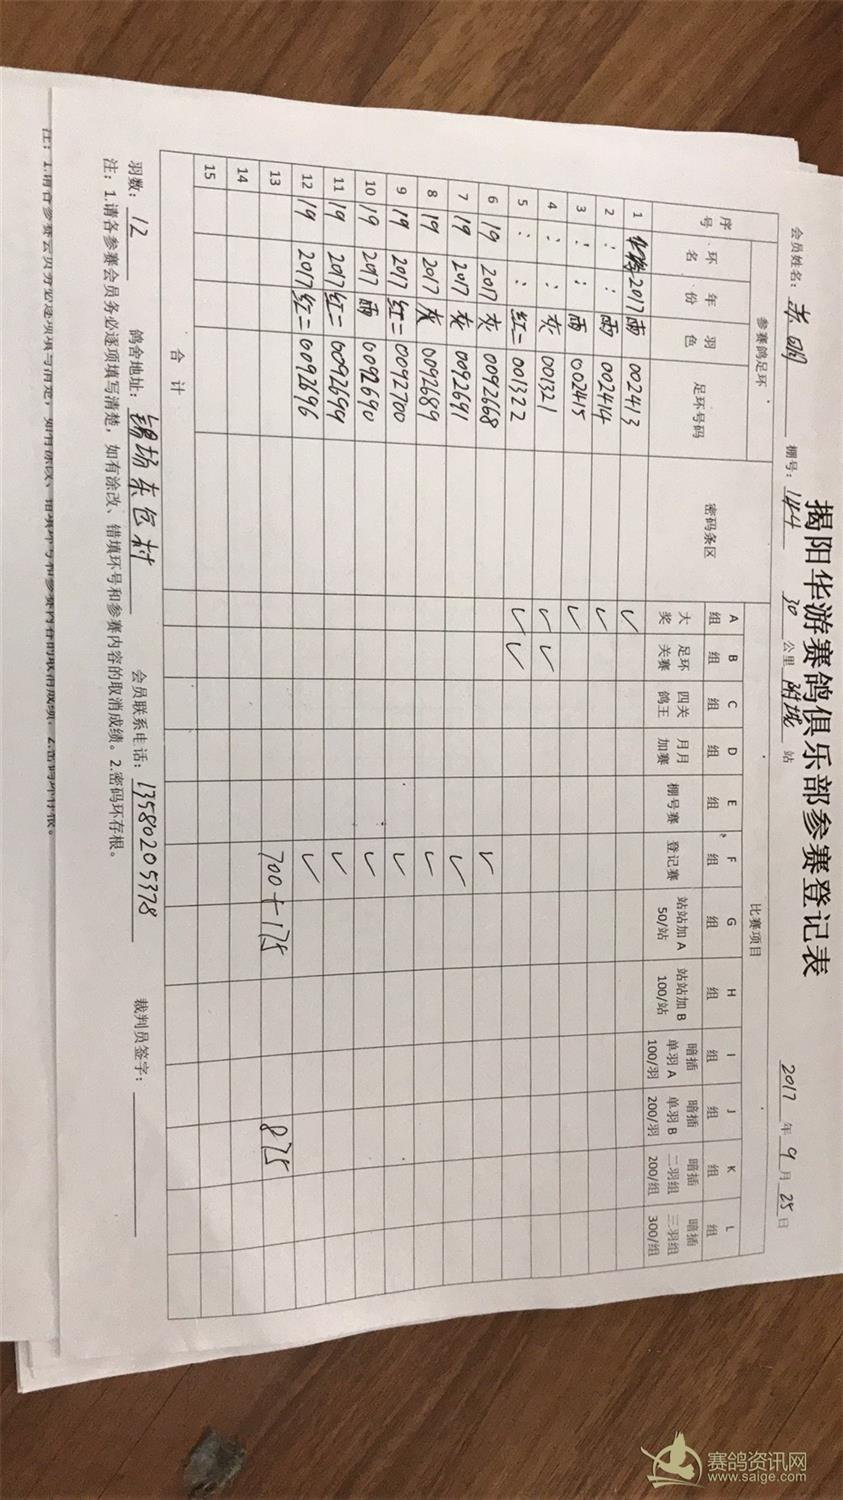 揭阳华游赛鸽俱乐部参赛登记表
会员姓名: 棚号: 144 30 公里 附城 站 2017 年 9 月 25 日
序号 参赛鸽足环 密码条区 比赛项目
环名 年份 羽色 足环号码 A组 B组 C组 D组 E组 F组 G组 H组 I组 J组 K组 L组
大奖 足环关赛 四关鸽王 月月加赛 棚号赛 登记赛 站站加A 50/站 站站加B 100/站 暗插单羽A 100/羽 暗插单羽B 200/羽 暗插二羽组 200/组 暗插三羽组 300/组
1 2017 雨 002413 ✓
2 : : 雨 002414 ✓
3 : : 雨 002415 ✓
4 : : 灰 001321 ✓ ✓
5 : : 红二 001322 ✓ ✓
6 19 2017 灰 0092668 ✓
7 19 2017 灰 0092691 ✓
8 19 2017 灰 0092689 ✓
9 19 2017 红二 0092700 ✓
10 19 2017 雨 0092690 ✓
11 19 2017 红二 0092699 ✓
12 19 2017 红二 0092696 ✓
13 700+175 875
14
15
合计
羽数: 12 鸽舍地址: 锡场东包村 会员联系电话: 13580205378 裁判员签字:
注: 1.请各参赛会员务必逐项填写清楚，如有涂改、错填环号和参赛内容的取消成绩。2.密码环存根。
注: 1.请各参赛会员务必逐项填写清楚，如有涂改、错填环号和参赛内容的取消成绩。2.密码环存根。
赛鸽资讯网
www.saige.com